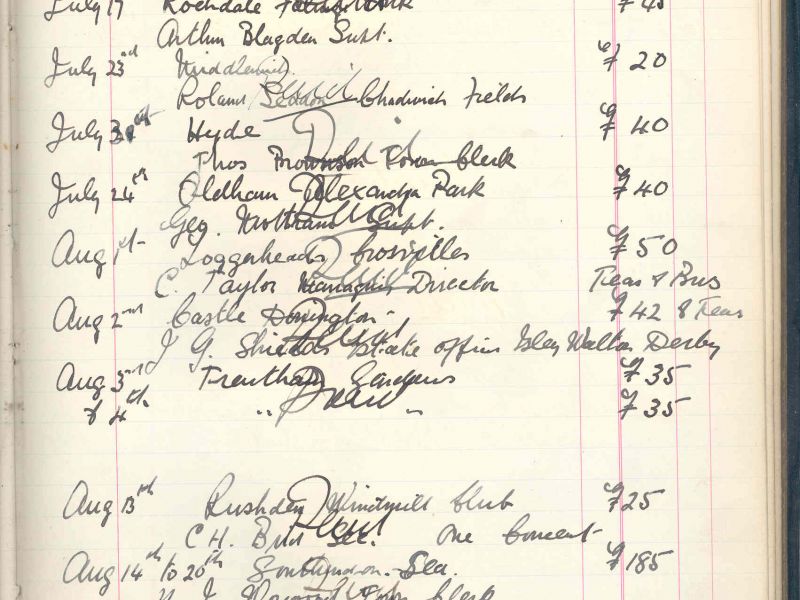 July 17 Rochdale Park £45
Arthur Blagden Supt.
July 23rd Middlewich £20
Roland Seddon Chadwick Fields
July 31st Hyde £40
Thos Brownson Town Clerk
July 24th Oldham Alexandra Park £40
Geo. Mottram Supt.
Aug 1st Loggerheads £50
C. Taylor Managing Director Teas & Bus
Aug 2nd Castle Donington - £42 & Teas
J G. Shields Estate office Isley Walton Derby
Aug 3rd Trentham Gardens £35
& 4th " " £35
Aug 13th Rushden Windmill Club £25
C H. Sec. One Concert
Aug 14th to 20th Southend-on-Sea. £185
Town Clerk